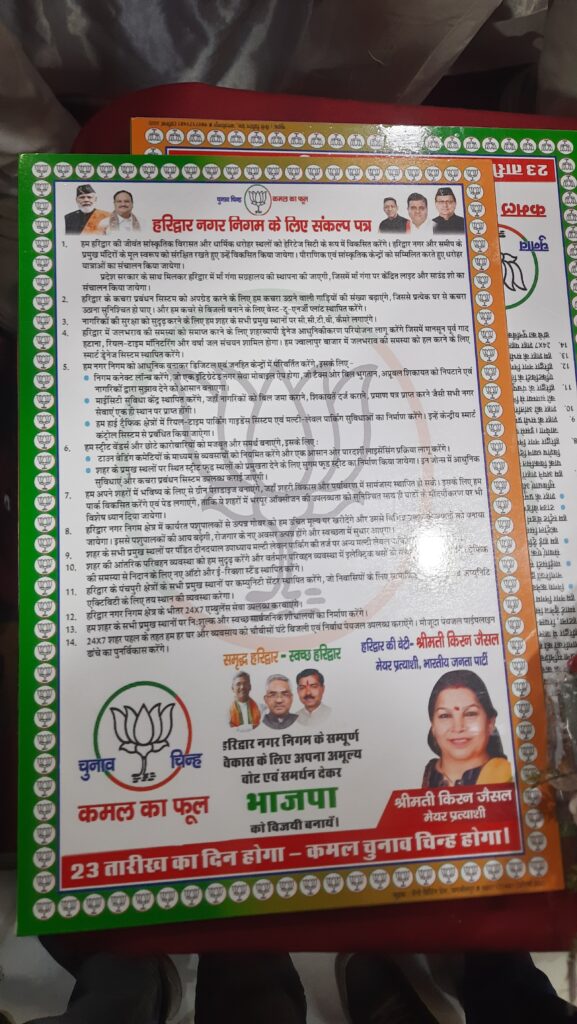 चुनाव चिन्ह कमल का फूल
हरिद्वार नगर निगम के लिए संकल्प पत्र
1. हम हरिद्वार की जीवंत सांस्कृतिक विरासत और धार्मिक धरोहर स्थलों को हेरिटेज सिटी के रूप में विकसित करेंगे। हरिद्वार नगर और समीप के
प्रमुख मंदिरों के मूल स्वरूप को संरक्षित रखते हुए उन्हें विकसित किया जायेगा। पौराणिक एवं सांस्कृतिक केन्द्रों को सम्मिलित करते हुए धरोहर
यात्राओं का संचालन किया जायेगा।
प्रदेश सरकार के साथ मिलकर हरिद्वार में माँ गंगा संग्रहालय की स्थापना की जाएगी, जिसमें माँ गंगा पर केंद्रित लाइट और साउंड शो का
संचालन किया जायेगा।
2. हरिद्वार के कचरा प्रबंधन सिस्टम को अपग्रेड करने के लिए हम कचरा उठाने वाली गाड़ियों की संख्या बढ़ाएंगे, जिससे प्रत्येक घर से कचरा
उठाना सुनिश्चित हो पाए। और हम कचरे से बिजली बनाने के लिए वेस्ट-टू-एनर्जी प्लांट स्थापित करेंगे।
3. नागरिकों की सुरक्षा को सुदृढ़ करने के लिए हम शहर के सभी प्रमुख स्थानों पर सी.सी.टी.वी. कैमरे लगाएंगे।
4. हरिद्वार में जलभराव की समस्या को समाप्त करने के लिए शहरव्यापी ड्रेनेज आधुनिकीकरण परियोजना लागू करेंगे जिसमें मानसून पूर्व गाद
हटाना, रियल-टाइम मॉनिटरिंग और वर्षा जल संचयन शामिल होगा। हम ज्वालापुर बाजार में जलभराव की समस्या को हल करने के लिए
स्मार्ट ड्रेनेज सिस्टम स्थापित करेंगे।
5. हम नगर निगम को आधुनिक बनाकर डिजिटल एवं जनहित केन्द्रों में परिवर्तित करेंगे, इसके लिए -
● निगम कनेक्ट लॉन्च करेंगे, जो एक इंटीग्रेटेड नगर सेवा मोबाइल ऐप होगा, जो टैक्स और बिल भुगतान, अप्रूवल शिकायत को निपटाने एवं
नागरिकों द्वारा सुझाव देने को आसान बनाएगी।
● माईसिटी सुविधा केंद्र स्थापित करेंगे, जहाँ नागरिकों को बिल जमा कराने, शिकायतें दर्ज कराने, प्रमाण पत्र प्राप्त करने जैसी सभी नगर
सेवाएं एक ही स्थान पर प्राप्त होंगी।
● हम हाई ट्रैफिक क्षेत्रों में रियल-टाइम पार्किंग गाइडेंस सिस्टम एवं मल्टी-लेवल पार्किंग सुविधाओं का निर्माण करेंगे। इन्हें केन्द्रीय स्मार्ट
कंट्रोल सिस्टम से प्रबंधित किया जाएगा।
6. हम स्ट्रीट वेंडर्स और छोटे कारोबारियों को मजबूत और समर्थ बनाएंगे, इसके लिए :
● टाउन वेंडिंग कमेटियों के माध्यम से व्यवसायों को नियमित करेंगे और एक आसान और पारदर्शी लाइसेंसिंग प्रक्रिया लागू करेंगे।
● शहर के प्रमुख स्थलों पर स्थित स्ट्रीट फूड स्थलों को प्रमुखता देने के लिए सुगम फूड स्ट्रीट का निर्माण किया जायेगा। इन जोन्स में आधुनिक
सुविधाएं और कचरा प्रबंधन सिस्टम उपलब्ध कराई जाएंगी।
7. हम अपने शहरों में भविष्य के लिए से ग्रीन पैराडाइज बनाएंगे, जहाँ शहरी विकास और पर्यावरण में सामंजस्य स्थापित हो सके। इसके लिए हम
पार्क विकसित करेंगे एवं पेड़ लगाएंगे, ताकि ये शहरों में भरपूर ऑक्सीजन की उपलब्धता को सुनिश्चित साथ ही घाटों के सौंदर्यीकरण पर भी
विशेष ध्यान दिया जायेगा।
8. हरिद्वार नगर निगम क्षेत्र में कार्यरत पशुपालकों से उत्पन्न गोबर को हम उचित मूल्य पर खरीदेंगे और उससे विभिन्न को बनाया
जायेगा। इससे पशुपालकों की आय बढ़ेगी, रोजगार के नए अवसर उत्पन्न होंगे और स्वच्छता में सुधार आएगा।
9. शहर के सभी प्रमुख स्थलों पर पंडित दीनदयाल उपाध्याय मल्टी लेवल पार्किंग की तर्ज पर अन्य मल्टी लेवल
10. शहर की आंतरिक परिवहन व्यवस्था को हम सुदृढ़ करेंगे और वर्तमान परिवहन व्यवस्था में इलेक्ट्रिक बसों ट्रैफिक
की समस्या से निदान के लिए नए ऑटो और ई-रिक्शा स्टैंड स्थापित करेंगे।
11. हरिद्वार के पंचपुरी क्षेत्रों के सभी प्रमुख स्थानों पर कम्युनिटी सेंटर स्थापित करेंगे, जो निवासियों के लिए
एक्टिविटी के लिए तय स्थान प्रदान करेंगे।
12. हरिद्वार नगर निगम क्षेत्र के भीतर 24X7 एम्बुलेंस सेवा उपलब्ध करवाएंगे।
13. हम शहर के सभी प्रमुख स्थानों पर नि:शुल्क और स्वच्छ सार्वजनिक शौचालयों का निर्माण करेंगे।
14. 24X7 शहर पहल के तहत हम हर घर और व्यवसाय को चौबीसों घंटे बिजली एवं निर्बाध पेयजल उपलब्ध कराएंगे। मौजूदा पेयजल पाईपलाइन
ढांचे का पुनर्विकास करेंगे।
समृद्ध हरिद्वार - स्वच्छ हरिद्वार
हरिद्वार की बेटी- श्रीमती किरन जैसल
मेयर प्रत्याशी, भारतीय जनता पार्टी
चुनाव चिन्ह
कमल का फूल
हरिद्वार नगर निगम के सम्पूर्ण
विकास के लिए अपना अमूल्य
वोट एवं समर्थन देकर
भाजपा
को विजयी बनायें।
श्रीमती किरन जैसल
मेयर प्रत्याशी
23 तारीख का दिन होगा – कमल चुनाव चिन्ह होगा।
23 तारी
कमल
चुनाव